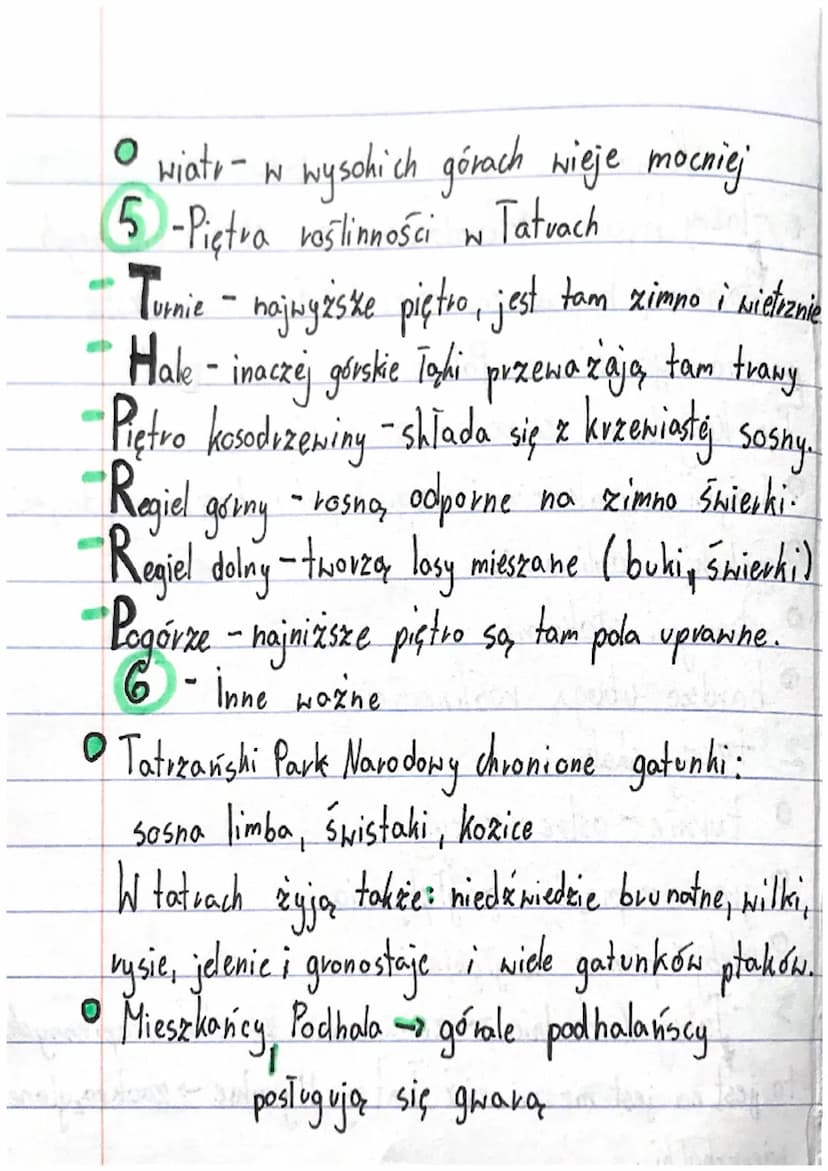 wiatr - w wysokich górach wieje mocniej
5 - Piętra roślinności w Tatrach
- Turnie - najwyższe piętro, jest tam zimno i wietrznie
- Hale - inaczej górskie łąki przeważają tam trawy
- Piętro kosodrzewiny - składa się z krzewiastej sosny.
- Regiel górny - rosną odporne na zimno świerki.
- Regiel dolny - tworzą lasy mieszane (buki, świerki)
- Pogórze - najniższe piętro są tam pola uprawne.
6 - inne ważne
Tatrzański Park Narodowy chronione gatunki:
sosna limba, świstaki, kozice
W tatrach żyją także: niedźwiedzie brunatne, wilki,
rysie, jelenie i gronostaje i wiele gatunków ptaków.
Mieszkańcy Podhala → górale podhalańscy
posługują się gwarą